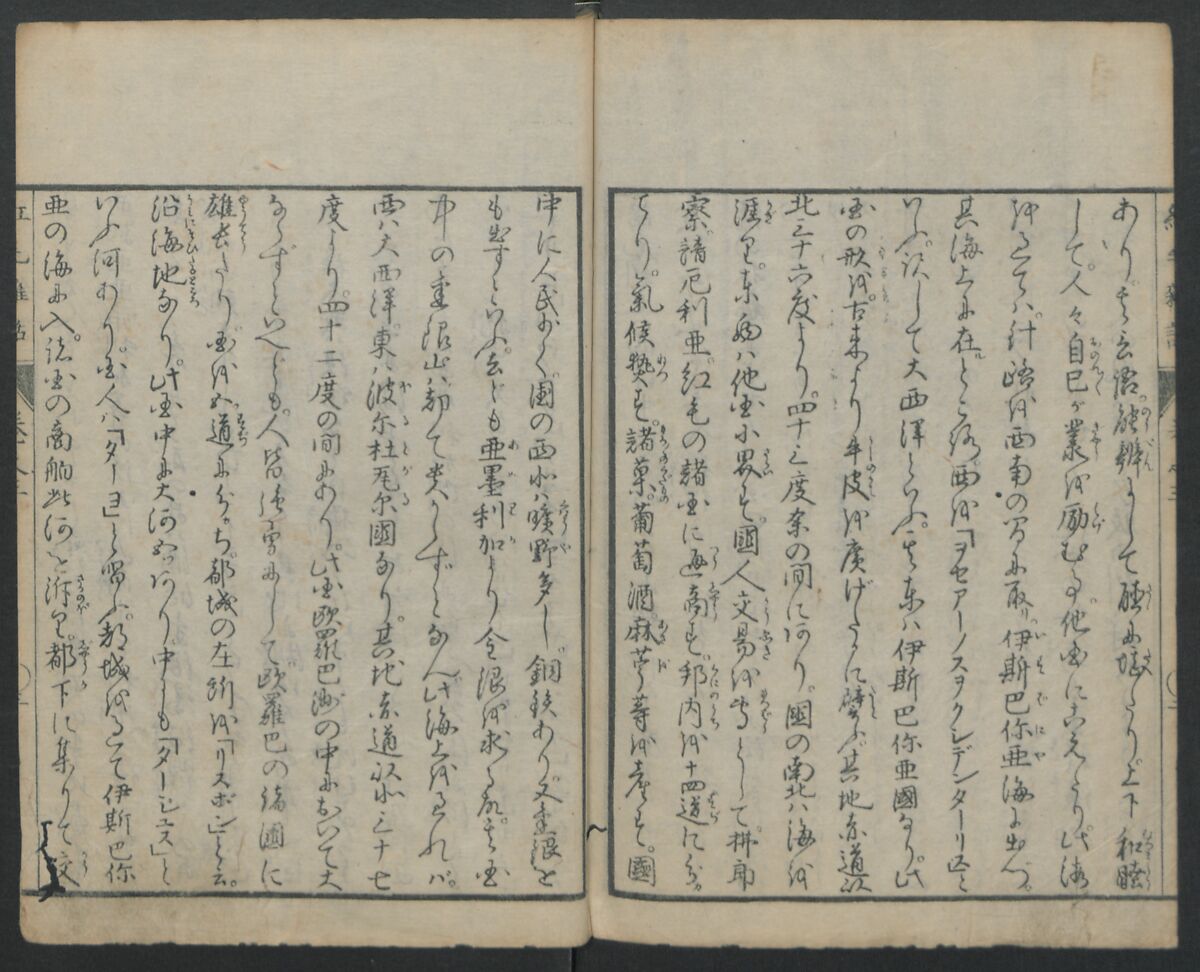 あり其言語能辨にして酷に恠たり上下和睦
して人々自己が業を励む事他国にこえたり此海
を去てハ針路を西南の間に取り伊斯巴你亜海に出べ
其海上に在ところ西を「ヲセアーノスヲクシデンターリス」と
いふ訳して大西洋といふ其東ハ伊斯巴你亜國なり此
国の形を古来より牛皮を廣げたるに譬ふ其地赤道以
北三十六度より四十三度余の間にあり国の南北ハ海を
涯り東西ハ他国に界す國人交易を専として
諳厄利亜紅毛の諸国に通商す邦内を十四道に分
てり氣候熱す諸菓葡萄酒麻苧等を産す國
中に人民少く国の西北ハ曠野多し銅鉄あり又金銀を
も出すといふ去ども亜墨利加より金銀を求る故其国
中の金銀山ハ都て失からずとなん此海上を去れバ
西ハ大西洋東ハ波尓杜瓦尓國なり其地赤道以北三十七
度より四十二度の間にあり此国欧羅巴洲の中において大
ならずといへども人皆強勇にして欧羅巴の諸國に
雄長たり国を五道に分ち都城の在所を「リスボン」と云
沿海地なり此国中に大河五つあり中にも「ターヒユス」と
いふ河あり国人ハ「ターヨ」と唱ふ都城を去て伊斯巴你
亜の海に入諸国の商舶此河を泝り都下に集りて交